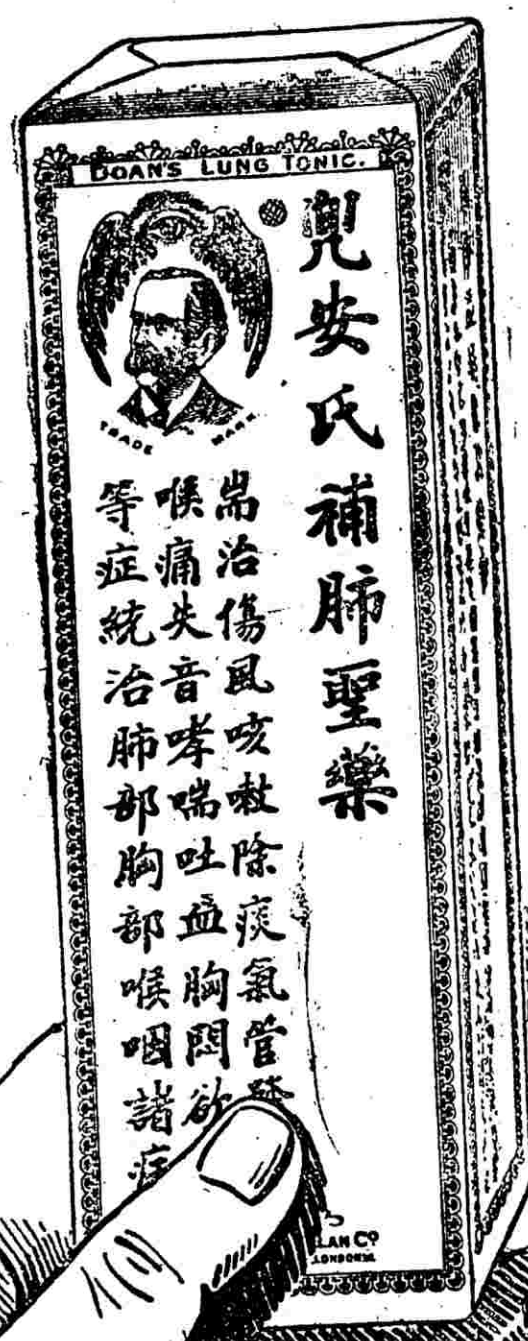 DOAN'S LUNG TONIC.
TRADE MARK
兜安氏補肺聖藥
耑治傷風咳嗽除痰氣管
喉痛失音哮喘吐血胸悶欲
等症統治肺部胸部喉咽諸症
LAN Co
LONDON